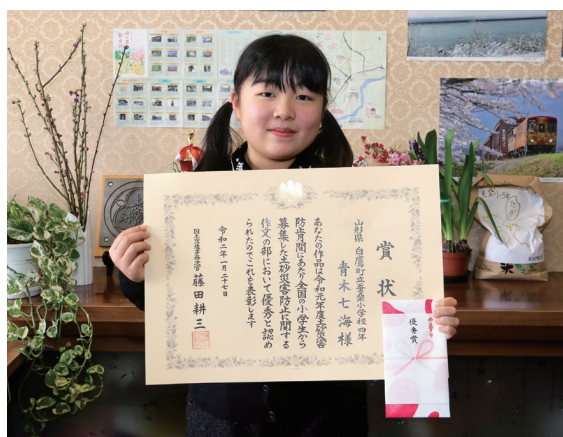 賞状
山形県 白鷹町立蚕桑小学校四年
青木七海様
あなたの作品は令和元年度土砂災害
防止月間にあたり全国の小学生から
募集した土砂災害防止に関する
作文の部において優秀と認め
られたのでこれを表彰します
令和二年一月二十七日
国土交通事務次官 藤田耕三
優秀賞